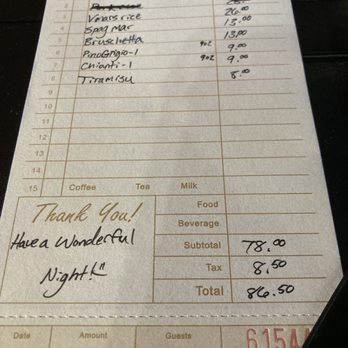 3 26.00
4 Spag Mar 13.00
5 Bruschetta 13.00
6 Pino Grigio-1 9oz 9.00
7 Chianti-1 9oz 9.00
8 Tiramisu 8.00
9
10
11
12
13
14
15 Coffee Tea Milk
Thank You!
Have a Wonderful
Night!"
Food
Beverage
Subtotal 78.00
Tax 8.50
Total 86.50
Date Amount Guests